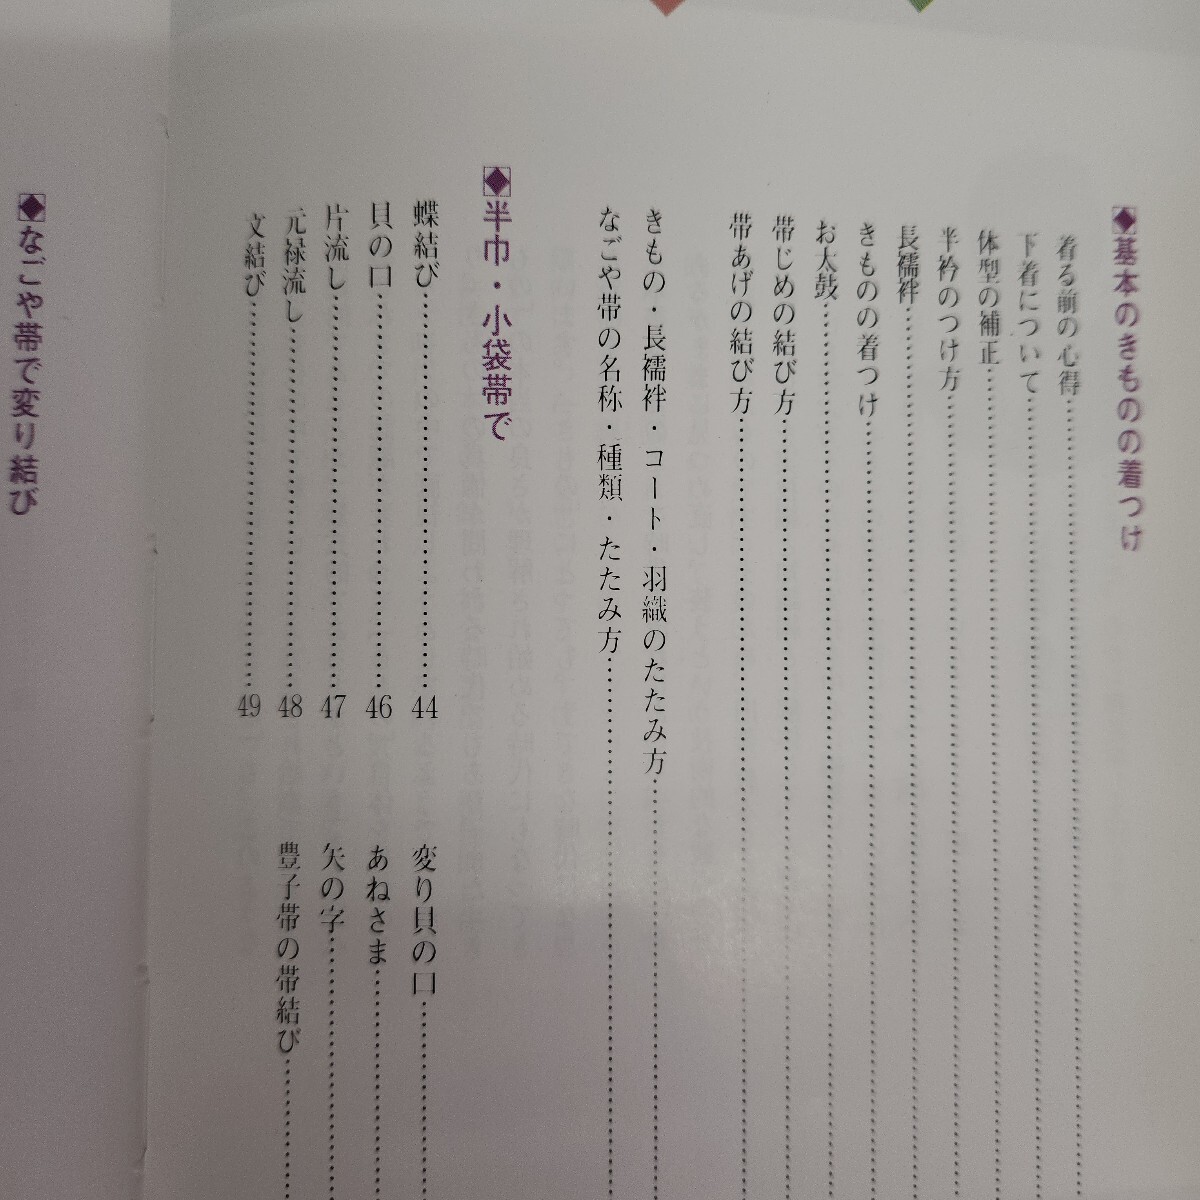 ◆基本のきものの着つけ
着る前の心得
下着について
体型の補正
半衿のつけ方
長襦袢
きものの着つけ
お太鼓
帯じめの結び方
帯あげの結び方
きもの・長襦袢・コート・羽織のたたみ方
なごや帯の名称・種類・たたみ方
◆半巾・小袋帯で
蝶結び 44
貝の口 46
片流し 47
元禄流し 48
文結び 49
変り貝の口
あねさま
矢の字
豊子帯の帯結び
◆なごや帯で変り結び